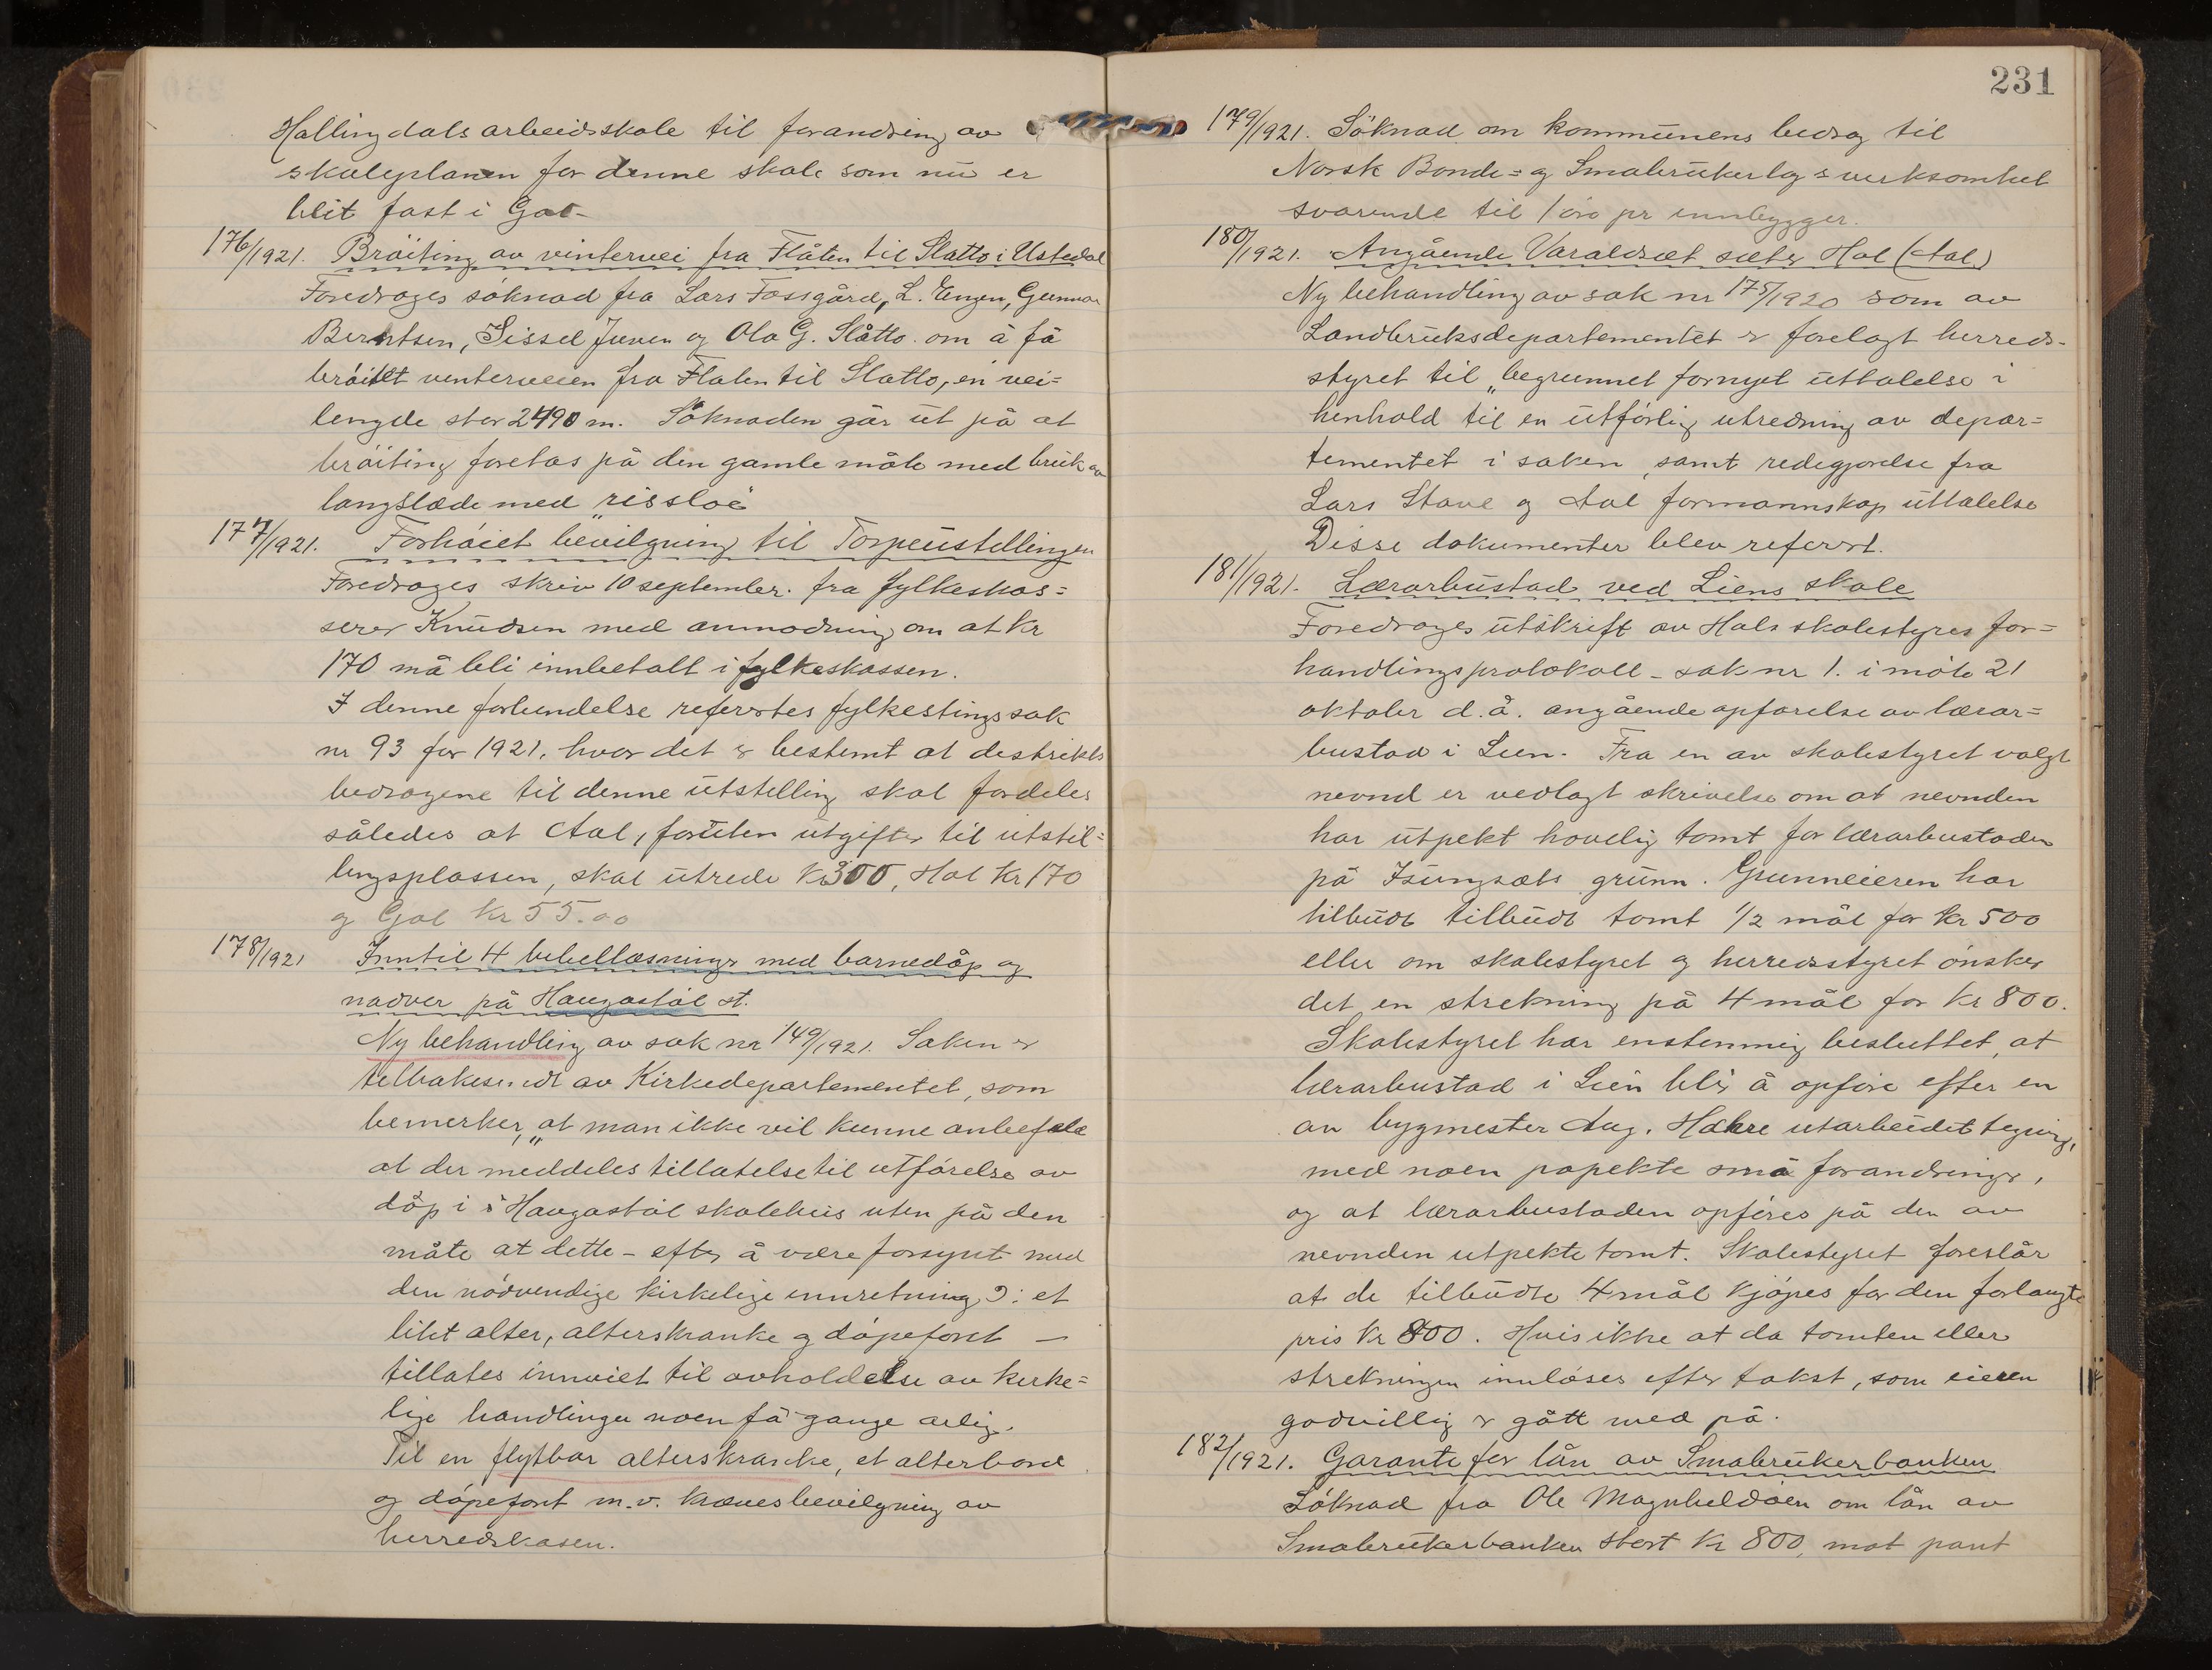 Hallingdals arbeidsskole til forandring av
skuleplanen for denne skole som nu er
blit fast i Gol-
176/1921. Bröiting av vintervei fra Flåten til Slatto i Ustedal
Foredroges söknad fra Lars Fossgård, L. Engen, Gunnar
Berntsen, Sissel Juven og Ola G. Slåtto om å få
bröitet venterveien fra Flaten til Slatto, en vei=
lengde stor 2490 m. Söknaden går ut på at
bröiting foretas på den gamle måte med bruk av
langslæde med "rissloe"
177/1921. Forhöiet bevilgning til Torpeustellingen
Foredroges skriv 10 september. fra fylkeskas=
serer Knudsen med anmodning om at kr
170 må bli innbetalt i fylkeskassen.
I denne forbindelse refertes fylkestingssak
nr 93 for 1921. hvor det er bestemt at destrikts
bedragene til denne utstelling skal fordeles
således at Aal, foruten utgifter til utstil=
lingsplassen, skal utrede kr 300, Hol kr 170
og Gol kr 55.00
178/1921 Inntil 4 bibellæsninger med barnedåp og
nadver på Haugastöl st.
Ny behandling av sak nr 149/1921. Saken er
tilbakesendt av Kirkedepartementet, som
bemerker, "at man ikke vil kunne anbefale
at der meddeles tillatelse til utförelse av
dåp i Haugastöl skolehus uten på den
måte at dette - efter å være forsynt med
den nödvendige kirkelige innretning ɔ: et
litet alter, alterskranke og döpefont —
tillates innviet til avholdelse av kirke=
lige handlinger noen få gange årlig.
Til en flytbar alterskranke, et alterbord
og döpefont m.v. kræves bevilgning av
herredskasen.
231
179/1921. Söknad om kommunens bedrag til
Norsk Bonde= og Smabrukerlags verksomhet
svarende til 1 öre pr innbygger.
180/1921. Angående Varaldset sæter Hol (Aal)
Ny behandling av sak nr 175/1920 som av
Landbruksdepartementet er forelagt herreds-
styret til "begrunnet fornyet uttalelse i
henhold til en utförlig utredning av depar=
tementet i saken, samt redegjorelse fra
Lars Stave og Aal formannskap uttalelse
Disse dokumenter blev referert.
181/1921. Lærarbustad ved Liens skole
Foredroges utskrift av Hols skolestyres for=
handlingsprotokoll - sak nr 1. i möte 21
oktober d.å. angående opförelse av lærar=
bustad i Lien. Fra en av skolestyret valgt
nevnd er vedlagt skrivelse om at nevnden
har utpekt hovelig tomt for lærarbustaden
på Isungsets grunn. Grunneieren har
tilbudt tilbudt tomt 1/2 mål for kr 500
eller om skolestyret og herredsstyret önsker
det en strekning på 4 mål for kr 800.
Skolestyret har enstemmig besluttet, at
lærarbustad i Lien blir å opföre efter en
av bygmester Aug. Hæhre utarbeidet tegning,
med noen papekte små forandringer,
og at lærarbustaden opföres på den av
nevnden utpekte tomt. Skolestyret foreslår
at de tilbudte 4 mål kjöpes for den forlangte
pris kr 800. Hvis ikke at da tomten eller
strekningen innlöses efter takst, som eieren
godvillig er gått med på.
182/1921. Garanti for lån av Smabrukerbanken
Söknad fra Ole Magnhildöen om lån av
Smabrukerbanken stort kr 800, mot pant